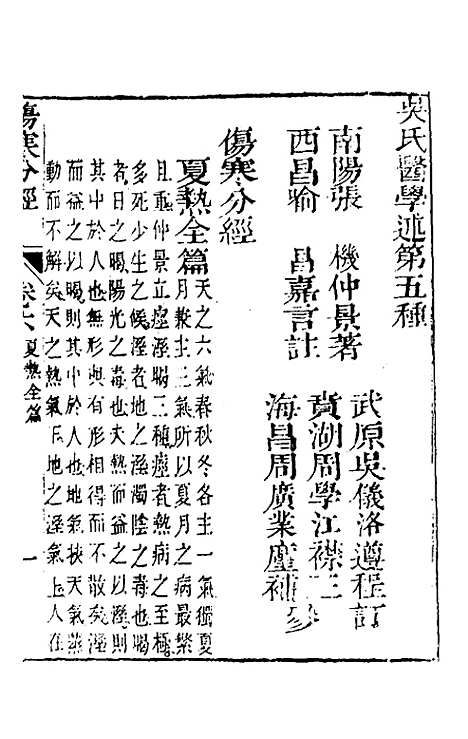 吳氏醫學述第五種
南陽張　機仲景著
西昌喻　昌嘉言註
武原吳儀洛遵程訂
賁湖周學江襟三
海昌周廣業塵補參
傷寒分經
夏熱全篇
天之六氣春秋冬各主一氣獨夏
月兼主三氣所以夏月之病最繁
且重仲景立痙溼暍三種痙者熱病之至極
多死少生之候溼者地之溼濁陰之毒也暍
者日之暍陽光之毒也夫熱而益之以溼則
其中於人也無形與有形相得而不散矣溼
而益之以暍則其中於人也地氣挾天氣蒸
動而不解矣天之熱氣下地之溼氣上人在
傷寒分經
卷七
夏熱全篇
一